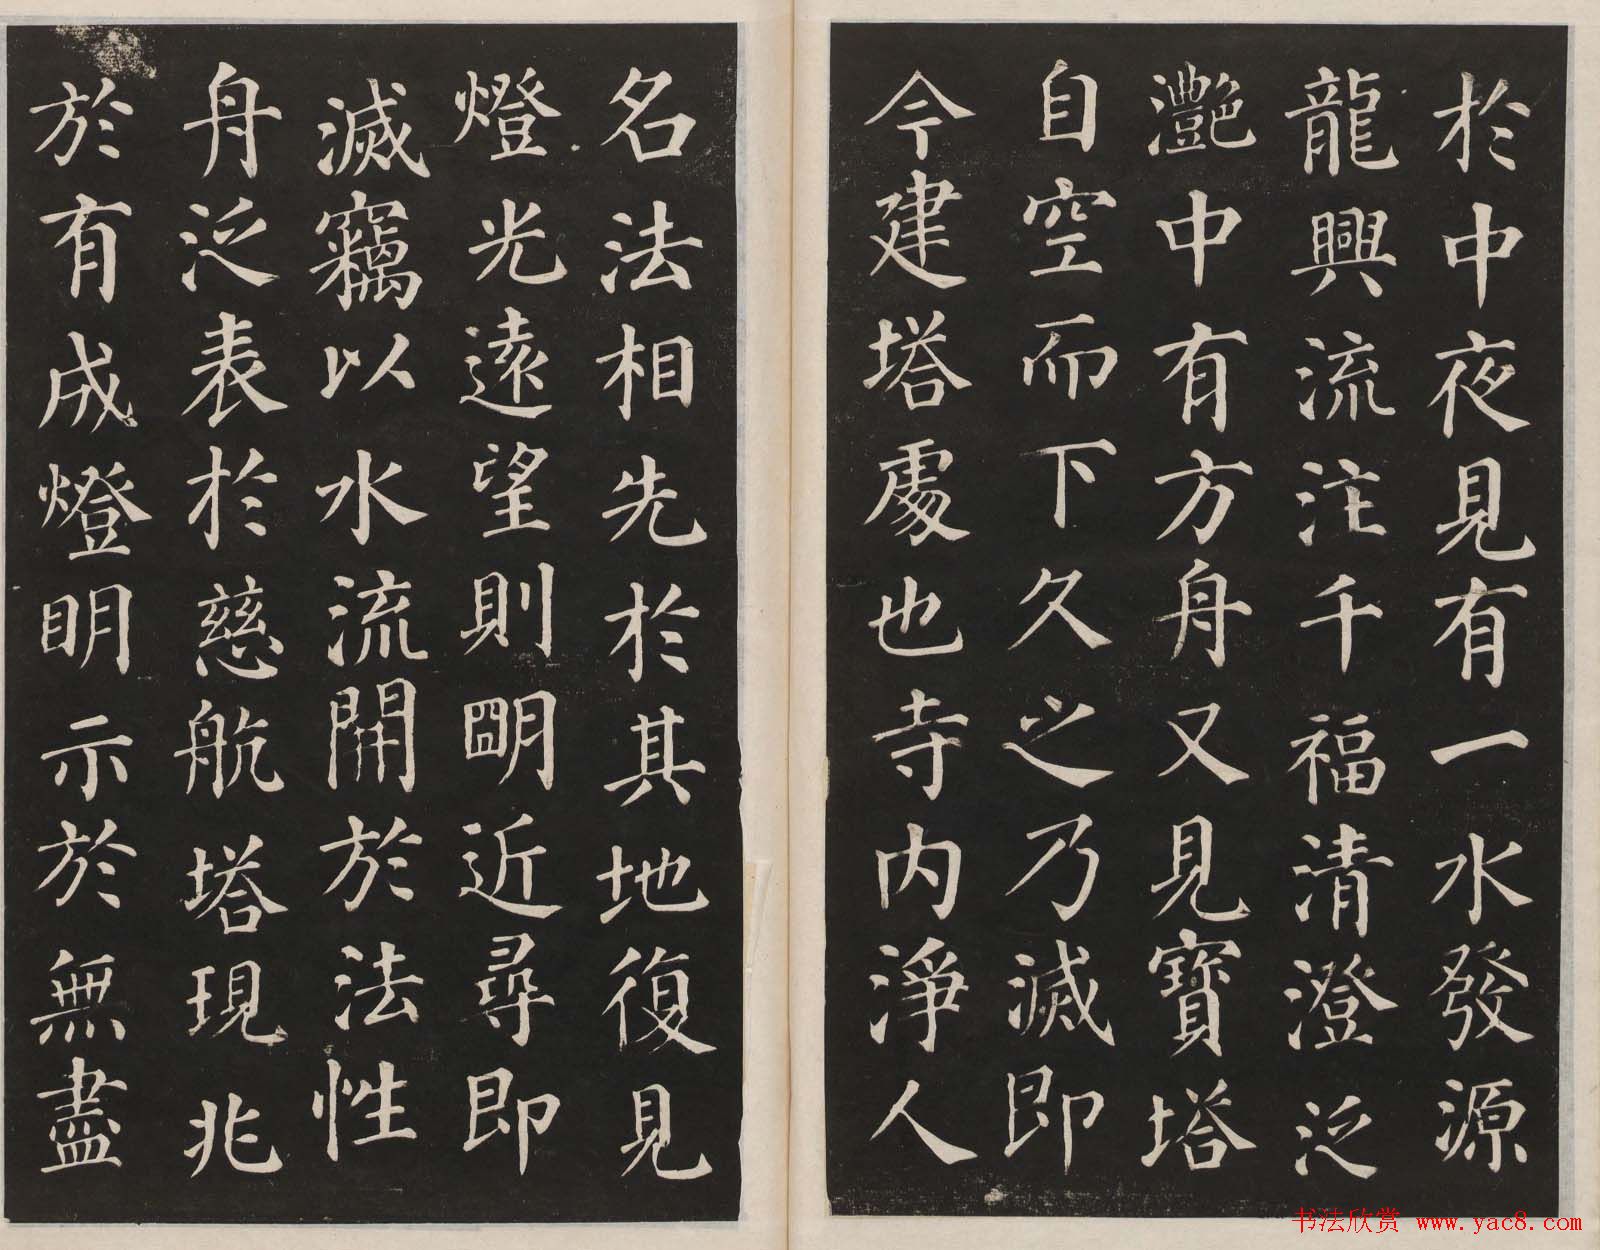 於中夜見有一水發源
龍興流注千福清澄泛
灔中有方舟又見寶塔
自空而下久之乃滅即
今建塔處也寺内淨人
名法相先於其地復見
燈光遠望則朙近尋即
滅竊以水流開於法性
舟泛表於慈航塔現兆
於有成燈明示於無盡
书法欣赏 www.yac8.com